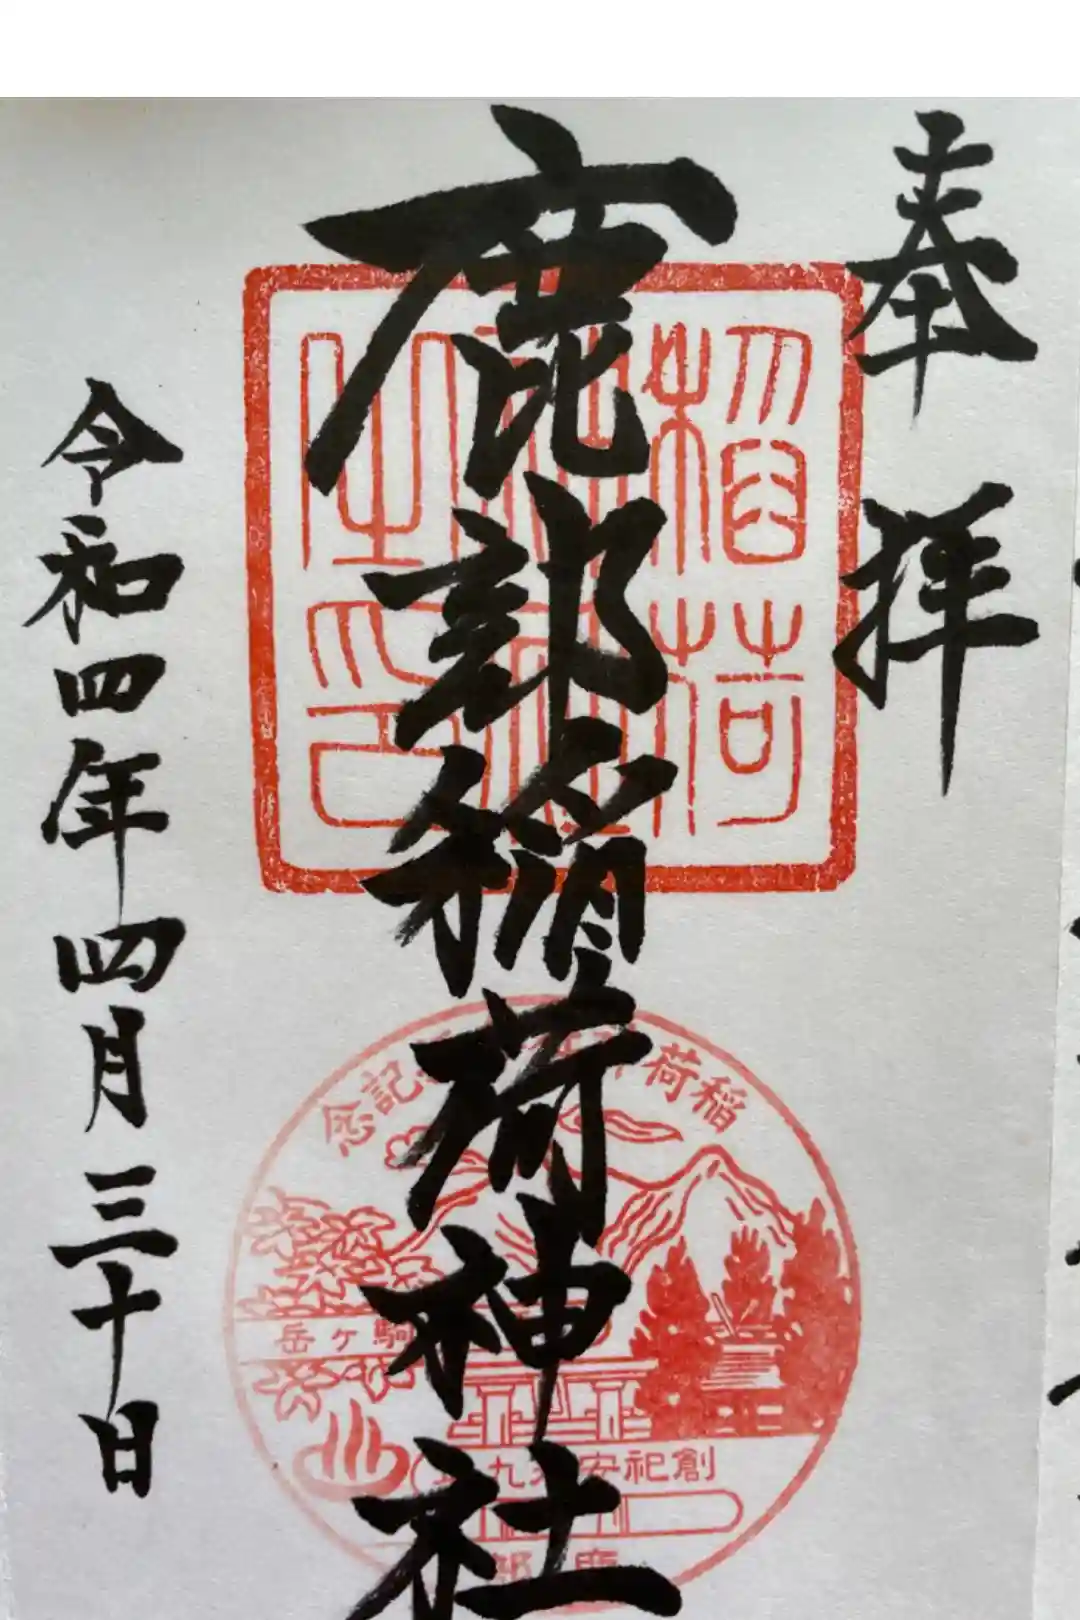 奉拝
鹿部稲荷神社
令和四年四月三十日
稲荷
之印
稲荷
記念
駒ヶ岳
創祀安永九
鹿部